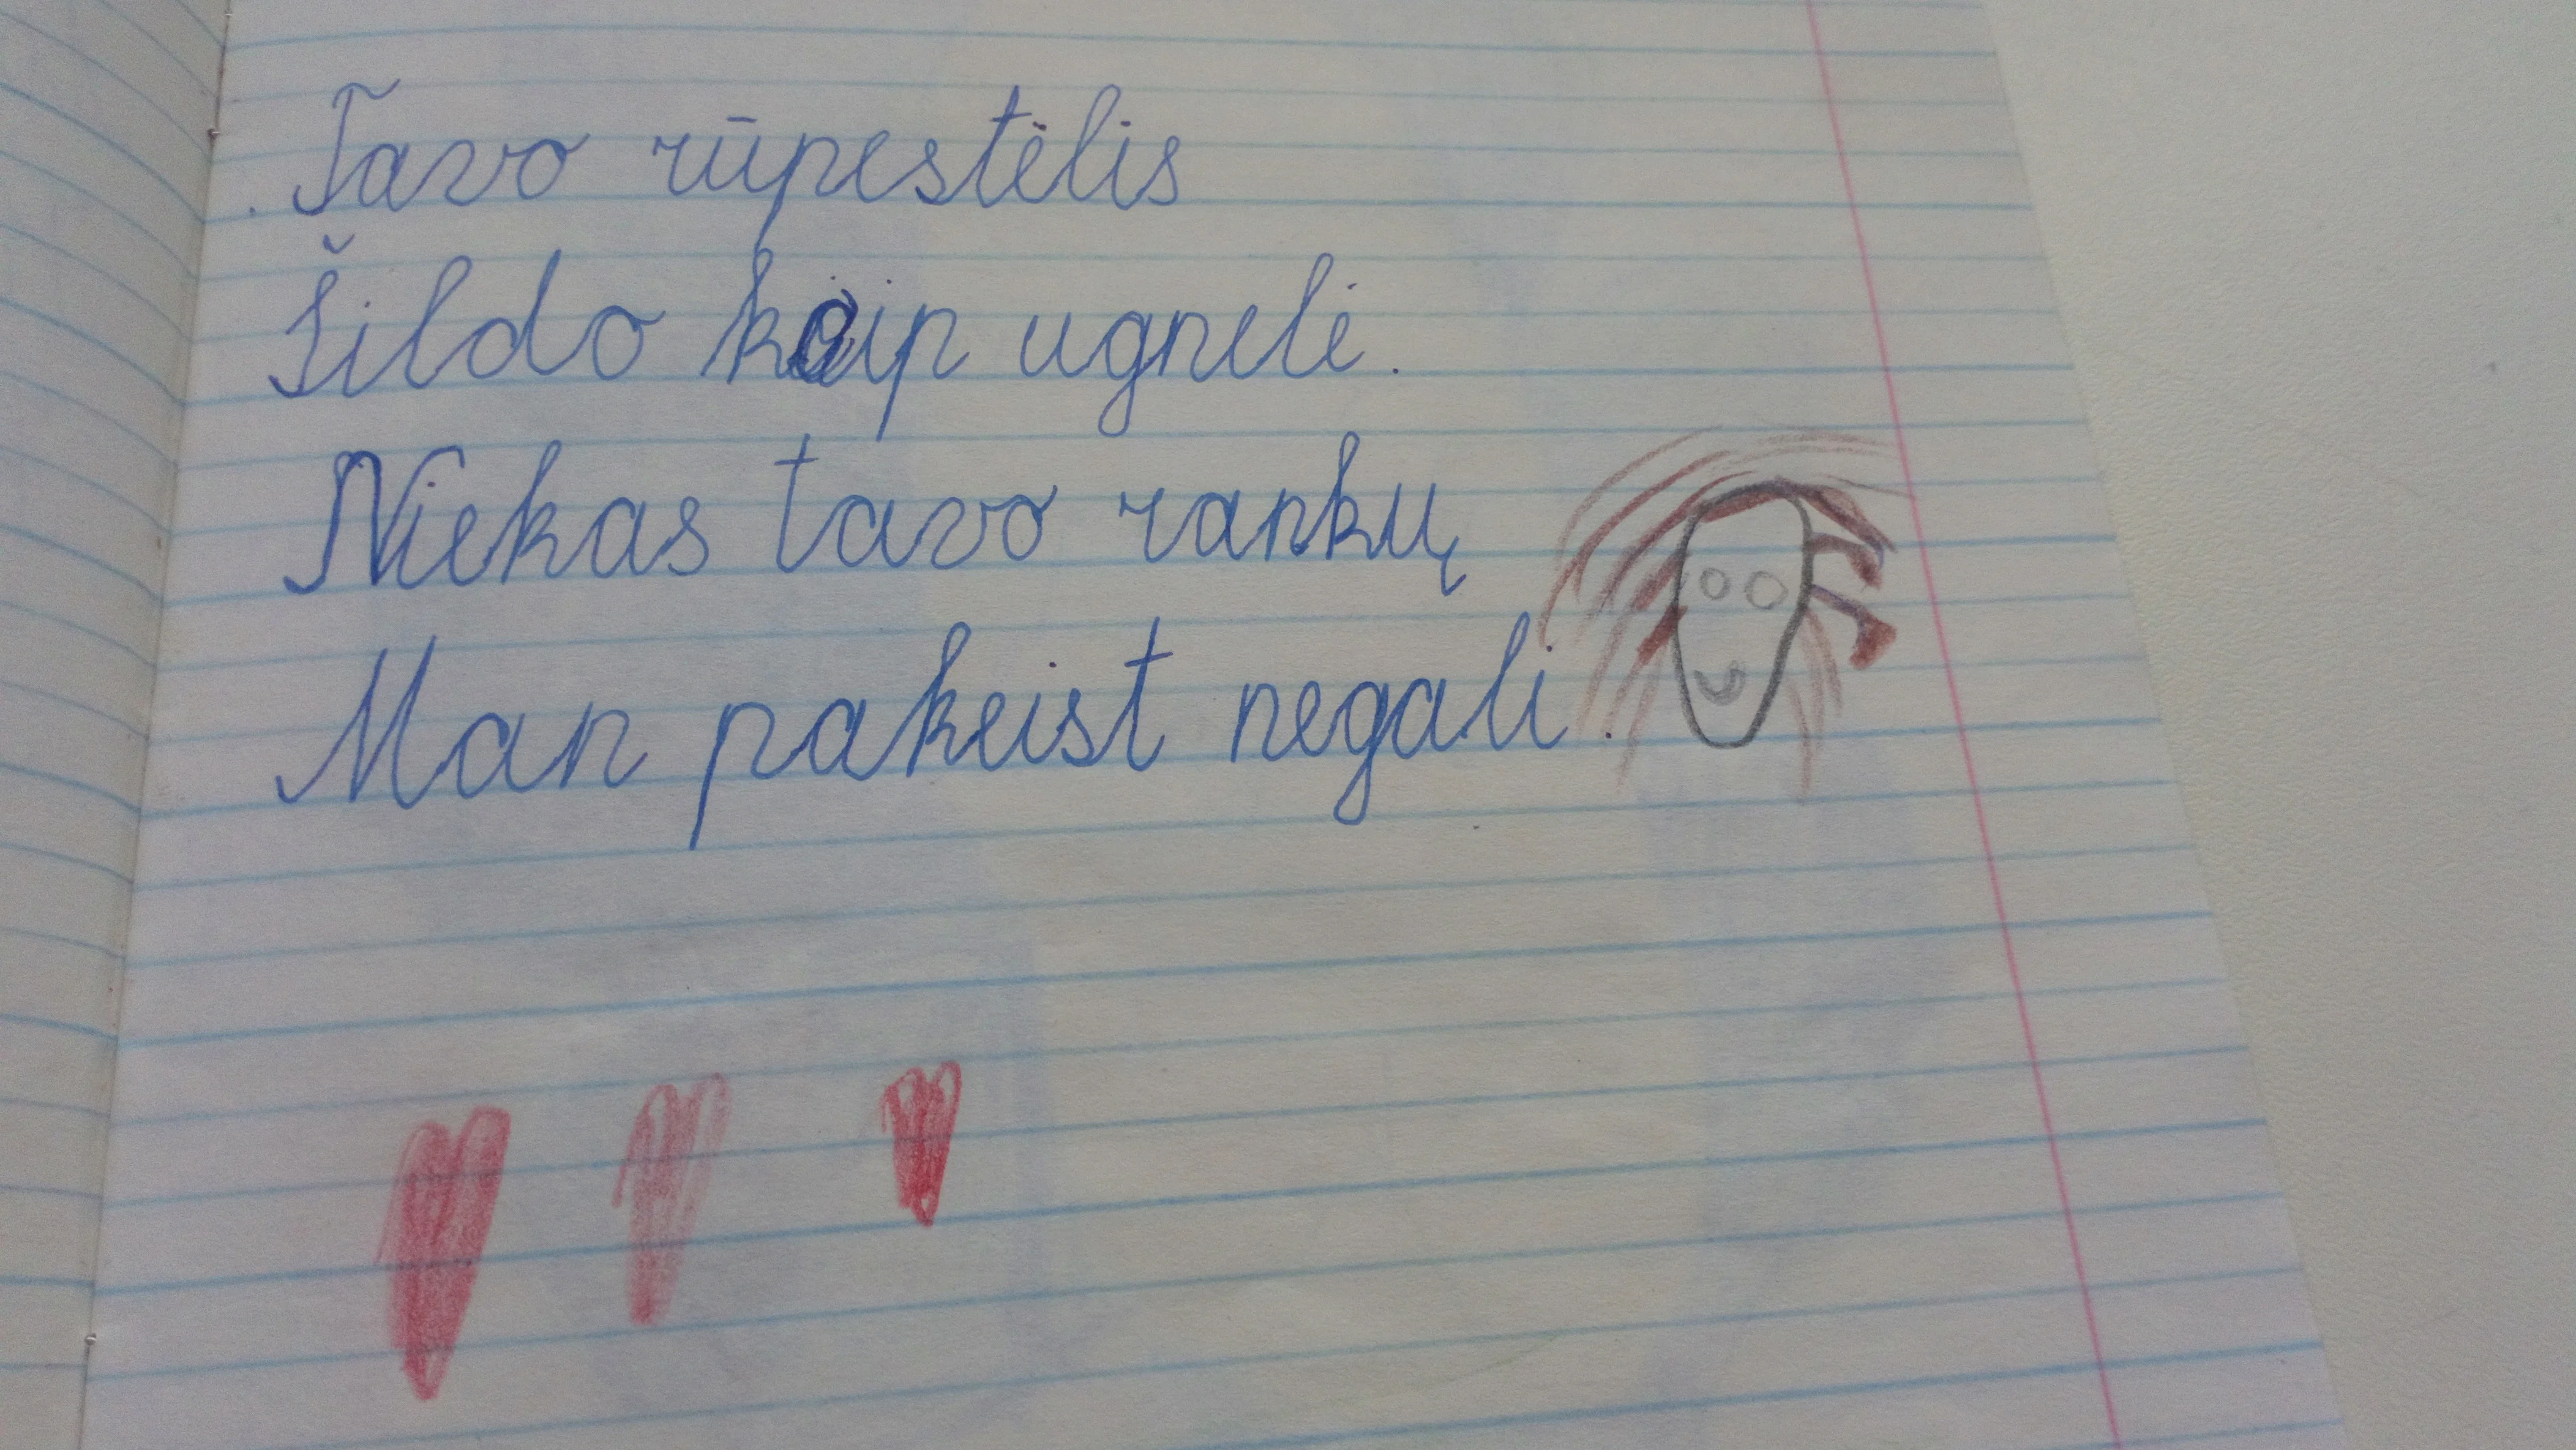 Tavo rūpestėlis
Šildo kaip ugnelė.
Niekas tavo rankų
Man pakeist negali.